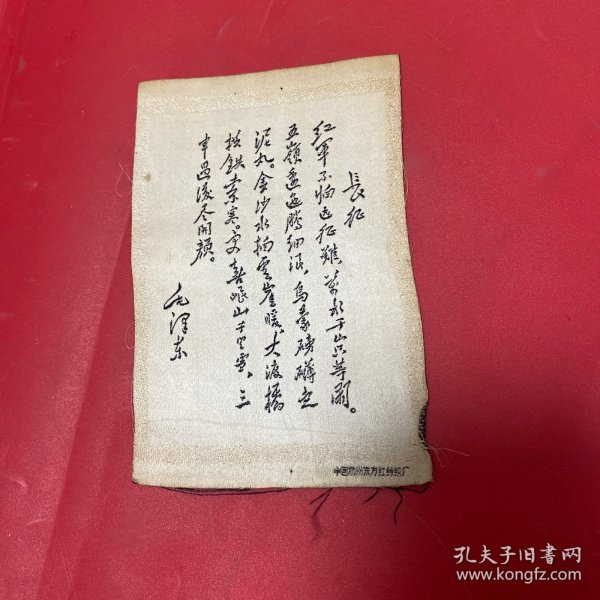 長征
红軍不怕远征难，萬水千山只等闲。
五嶺逶迤腾细浪，烏蒙磅礴走
泥丸。金沙水拍雲崖暖，大渡橋
横鉄索寒。更喜岷山千里雪，三
軍過後尽開颜。
毛澤东
中国杭州东方红丝织厂
孔夫子旧书网
www.kongfz.com